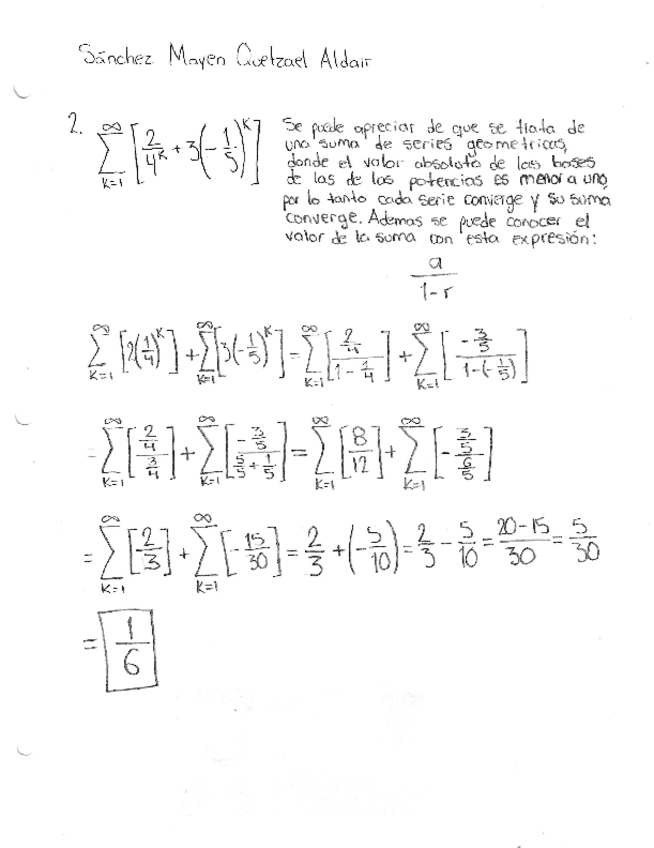 Sánchez Mayen Quetzael Aldair
2. ∑_{k=1}^{∞} [2/4^k + 3(-1/5)^k]
Se puede apreciar de que se trata de
una suma de series geometricas,
donde el valor absoluto de las bases
de las de las potencias es menor a uno,
por lo tanto cada serie converge y su suma
converge. Ademas se puede conocer el
valor de la suma con esta expresión:
a/(1-r)
∑_{k=1}^{∞} [2(1/4)^k] + ∑_{k=1}^{∞} [3(-1/5)^k] = ∑_{k=1}^{∞} [(2/4)/(1-1/4)] + ∑_{k=1}^{∞} [(-3/5)/(1-(-1/5))]
= ∑_{k=1}^{∞} [(2/4)/(3/4)] + ∑_{k=1}^{∞} [(-3/5)/(5/5+1/5)] = ∑_{k=1}^{∞} [8/12] + ∑_{k=1}^{∞} [-(3/5)/(6/5)]
= ∑_{k=1}^{∞} [2/3] + ∑_{k=1}^{∞} [-15/30] = 2/3 + (-5/10) = 2/3 - 5/10 = (20-15)/30 = 5/30
= 1/6